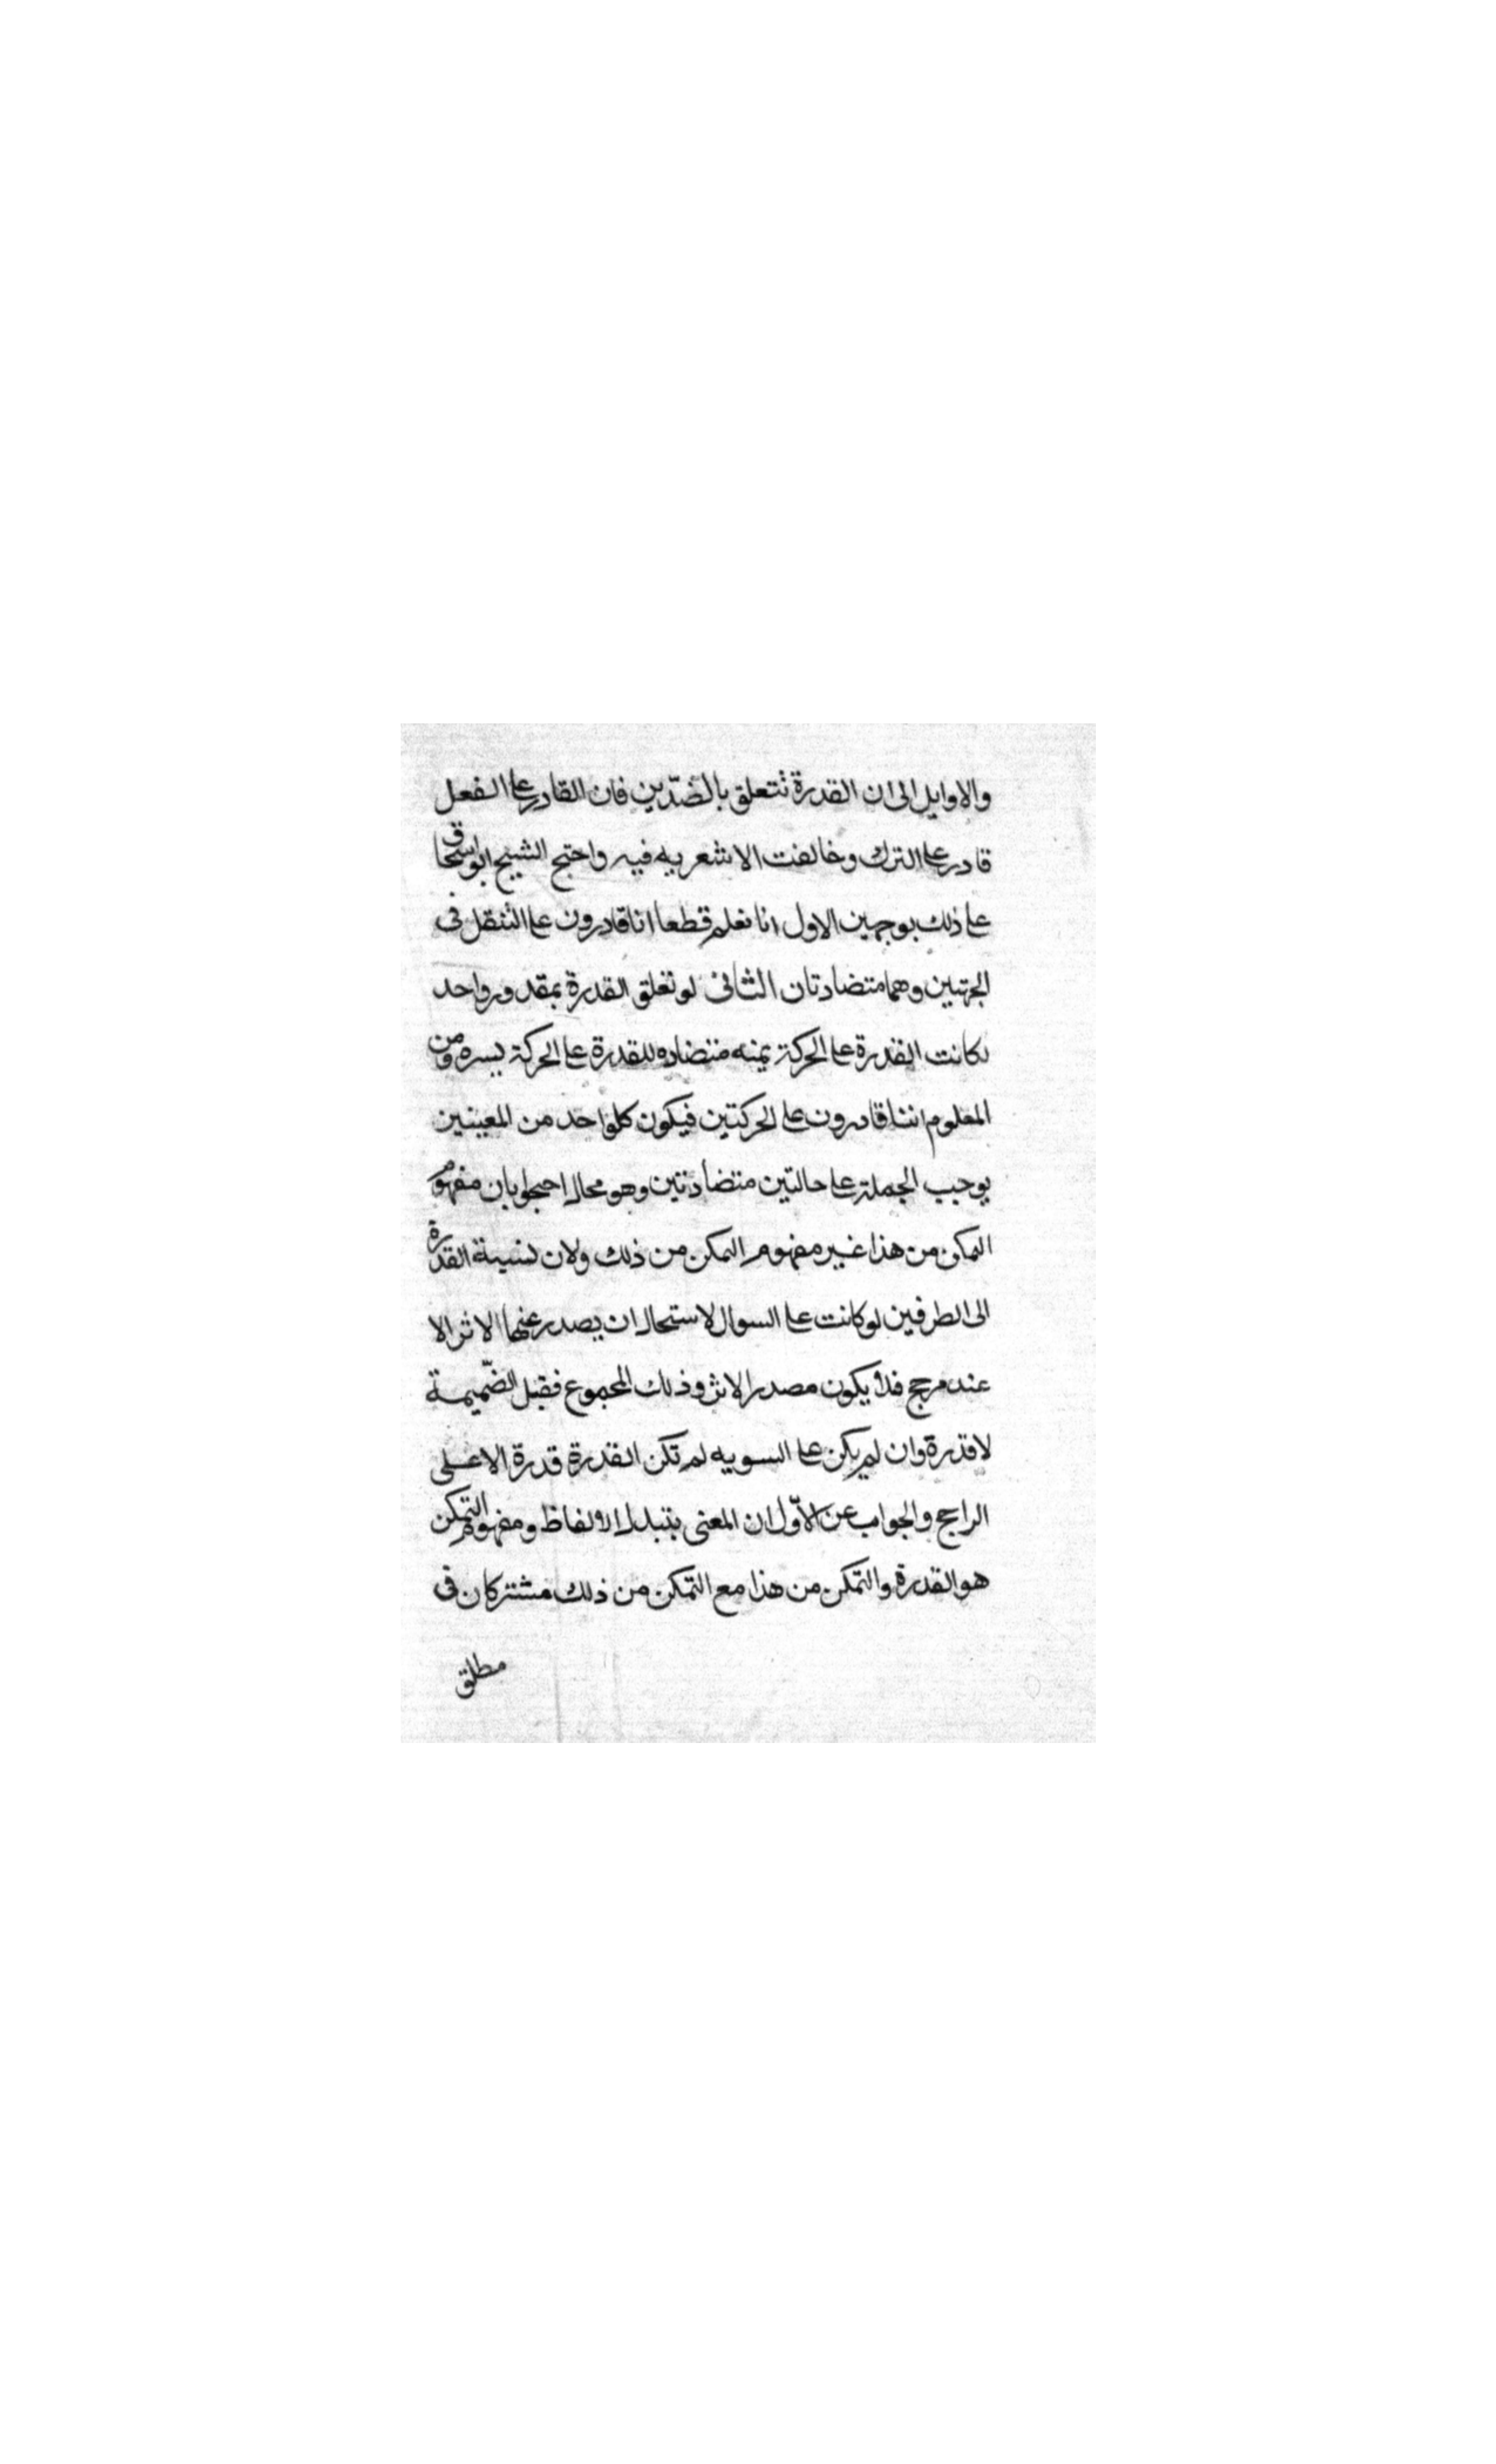 والاوايل الى ان القدرة تتعلق بالضدّين فان القادر على الفعل
قادر على الترك وخالفت الاشعريه فيه واحتج الشيخ ابو اسحاق
على ذلك بوجهين الاول انا نعلم قطعا انا قادرون على التنقل فى
الجهتين وهما متضادتان الثانى لو تعلق القدرة بمقدور واحد
لكانت القدرة على الحركة يمنه متضاده للقدرة على الحركة يسره ومن
المعلوم اننا قادرون على الحركتين فيكون كل واحد من المعينين
يوجب الجملة على حالتين متضادتين وهو محال احتجوا بان مفهوم
التمكن من هذا غير مفهوم التمكن من ذلك ولان نسبة القدرة
الى الطرفين لو كانت على السوال لاستحال ان يصدر عنها الاثر الا
عند مرجح فلا يكون مصدر الاثر وذلك المجموع فقبل الضّميمة
لا قدرة وان لم يكن على السويه لم تكن القدرة قدرة الا على
الراجح والجواب عن الاوّل ان المعنى يتبدل الالفاظ ومفهوم التمكن
هو القدرة والتمكن من هذا مع التمكن من ذلك مشتركان فى
مطلق